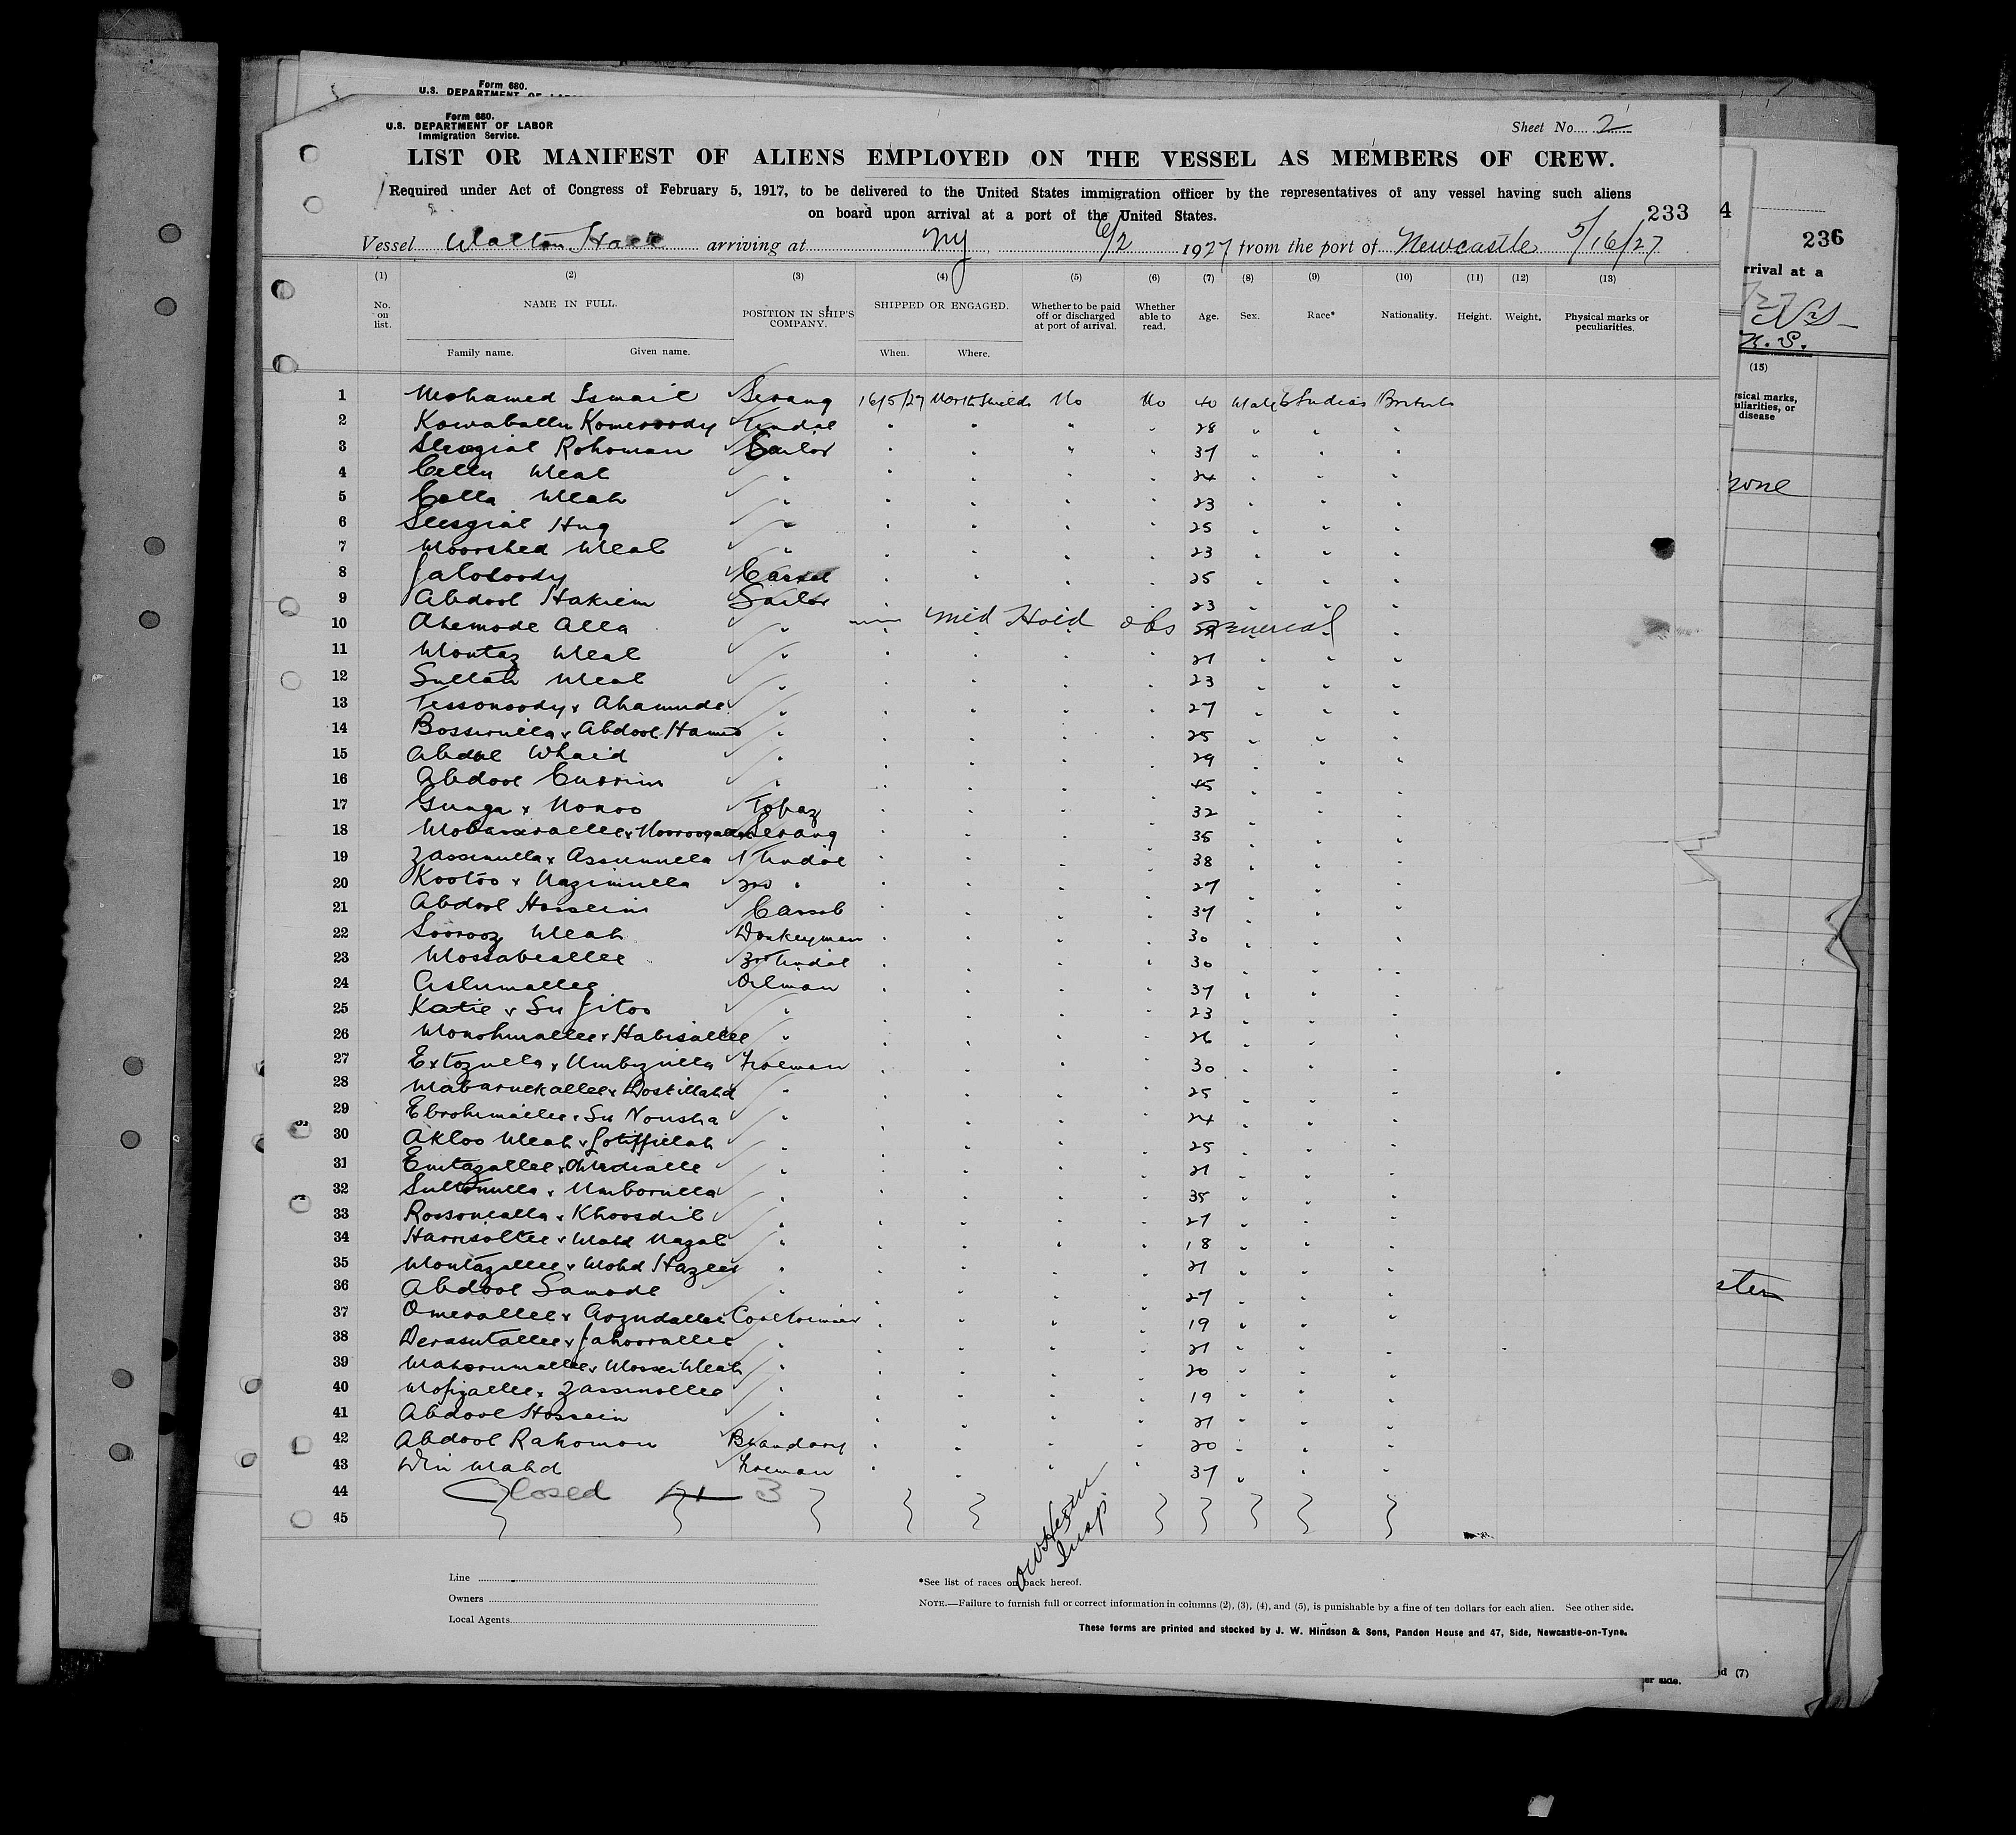 Form 680.
U.S. DEPARTMENT OF LABOR
Form 680.
U.S. DEPARTMENT OF LABOR
Immigration Service.
Sheet No. 2
LIST OR MANIFEST OF ALIENS EMPLOYED ON THE VESSEL AS MEMBERS OF CREW.
Required under Act of Congress of February 5, 1917, to be delivered to the United States immigration officer by the representatives of any vessel having such aliens
on board upon arrival at a port of the United States.
233
4
236
Vessel Walton Hall arriving at NY 6/2 1927 from the port of Newcastle 5/16/27
rrival at a
(1) (2) (3) (4) (5) (6) (7) (8) (9) (10) (11) (12) (13)
No. on list. NAME IN FULL. POSITION IN SHIP'S COMPANY. SHIPPED OR ENGAGED. Whether to be paid off or discharged at port of arrival. Whether able to read. Age. Sex. Race* Nationality. Height. Weight. Physical marks or peculiarities.
Family name. Given name. When. Where.
(15)
sical marks,
uliarities, or
disease
1 Mohamed Ismail Serang 16/5/27 North Shields No No 40 Male E Indies British
2 Kowaballu Komeroody Tindal " " " " 28 " " "
3 Rohoman Sailor " " " " 37 " " "
4 Weal " " " " " 24 " " "
5 Calla Weah " " " " " 23 " " "
6 Huq " " " " " 25 " " "
7 Moorshed Weal " " " " " 23 " " "
8 Jaloboody Cassab " " " " 25 " " "
9 Abdool Hakiem Sailor " " " " 23 " " "
10 Ahemode Alla " med Held obs venereal "
11 Montaz Weal " " " " " 21 " " "
12 Sullah Weal " " " " " 23 " " "
13 Tessonoody x Ahamude " " " " " 27 " " "
14 x Abdool Hamid " " " " " 25 " " "
15 Abdul Whaid " " " " " 29 " " "
16 Abdool Currim " " " " " 45 " " "
17 Gunga x Nonoo Topaz " " " " 32 " " "
18 Serang " " " " 35 " " "
19 Zassimulla x Assimulla 1 Tindal " " " " 38 " " "
20 Kootoo x Nazimulla 2nd " " " " " 27 " " "
21 Abdool Hossein Cassab " " " " 37 " " "
22 Soorooz Weah Donkeyman " " " " 30 " " "
23 Mossabeallee 3rd Tindal " " " " 30 " " "
24 Aslumallee Oilman " " " " 37 " " "
25 Katie x Su Jitoo " " " " " 23 " " "
26 Monohurallee x Habisallee " " " " " 26 " " "
27 Extozulla x Umbizulla Fireman " " " " 30 " " "
28 Mabaruckallee x " " " " " 25 " " "
29 Ebrohimallee x Su Nousha " " " " " 24 " " "
30 Akloo Weah x " " " " " 25 " " "
31 Emtazallee x " " " " " 21 " " "
32 x Umborulla " " " " " 35 " " "
33 Rossomealla x Khoosdil " " " " " 27 " " "
34 x Mahd Nazab " " " " " 18 " " "
35 Montazallee x Mohd " " " " " 21 " " "
36 Abdool Samode " " " " " 27 " " "
37 Omerallee x Coal trimmer " " " " 19 " " "
38 Derasutallee x Jahoorallee " " " " " 21 " " "
39 x Weah " " " " " 20 " " "
40 Mofizallee x Zassinollee " " " " " 19 " " "
41 Abdool Hossein " " " " " 21 " " "
42 Abdool Rahomon Bhandary " " " " 20 " " "
43 Din Mahd Fireman " " " " 37 " " "
44 Closed 3
45
Insp.
Line
Owners
Local Agents
*See list of races on back hereof.
NOTE.—Failure to furnish full or correct information in columns (2), (3), (4), and (5), is punishable by a fine of ten dollars for each alien. See other side.
These forms are printed and stocked by J. W. Hindson & Sons, Pandon House and 47, Side, Newcastle-on-Tyne.
er side.
d (7)